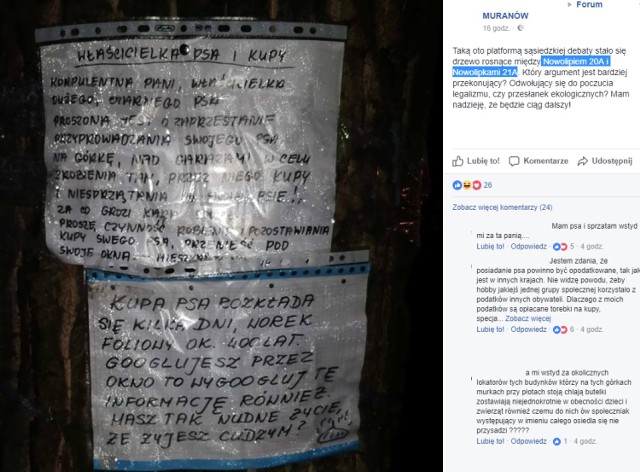 WŁAŚCICIELKA PSA I KUPY
KORPULENTNA PANI, WŁAŚCICIELKA
DUŻEGO, CZARNEGO PSA
PROSZONA JEST O ZAPRZESTANIE
PRZYPROWADZANIA SWOJEGO PSA,
NA GÓRKĘ, NAD GARAŻAMI W CELU
ZROBIENIA TAM, PRZEZ NIEGO KUPY
I NIESPRZĄTANIA PSIE!
ZA CO GROZI KARA
PROSZĘ CZYNNOŚĆ ROBIENIA I POZOSTAWIANIA
KUPY SWEGO PSA, PRZENIEŚĆ POD
SWOJE OKNA.
KUPA PSA ROZKŁADA
SIĘ KILKA DNI, WOREK
FOLIOWY OK. 400 LAT.
GOOGLUJESZ PRZEZ
OKNO TO WYGOOGLUJ TĘ
INFORMACJĘ RÓWNIEŻ.
MASZ TAK NUDNE ŻYCIE,
ŻE ŻYJESZ CUDZYM?
Forum
MURANÓW
16 godz. ·
Taką oto platformą sąsiedzkiej debaty stało się
drzewo rosnące między Nowolipiem 20A i
Nowolipkami 21A. Który argument jest bardziej
przekonujący? Odwołujący się do poczucia
legalizmu, czy przesłanek ekologicznych? Mam
nadzieję, że będzie ciąg dalszy!
Lubię to! Komentarze Udostępnij
26
Zobacz więcej komentarzy (24)
Mam psa i sprzatam wstyd
mi za ta panią....
Lubię to! · Odpowiedz · 5 · 4 godz.
Jestem zdania, że
posiadanie psa powinno być opodatkowane, tak jak
jest w innych krajach. Nie widzę powodu, żeby
hobby jakiejś jednej grupy społecznej korzystało z
podatków innych obywateli. Dlaczego z moich
podatków są opłacane torebki na kupy,
specja... Zobacz więcej
Lubię to! · Odpowiedz · 6 · 4 godz.
a mi wstyd za okolicznych
lokatorów tych budynków którzy na tych górkach
murkach przy płotach stoją chlają butelki
zostawiają niejednokrotnie w obecności dzieci i
zwierząt również czemu do nich ów społeczniak
występujący w imieniu całego osiedla się nie
przysadzi ?????
Lubię to! · Odpowiedz · 1 · 4 godz.